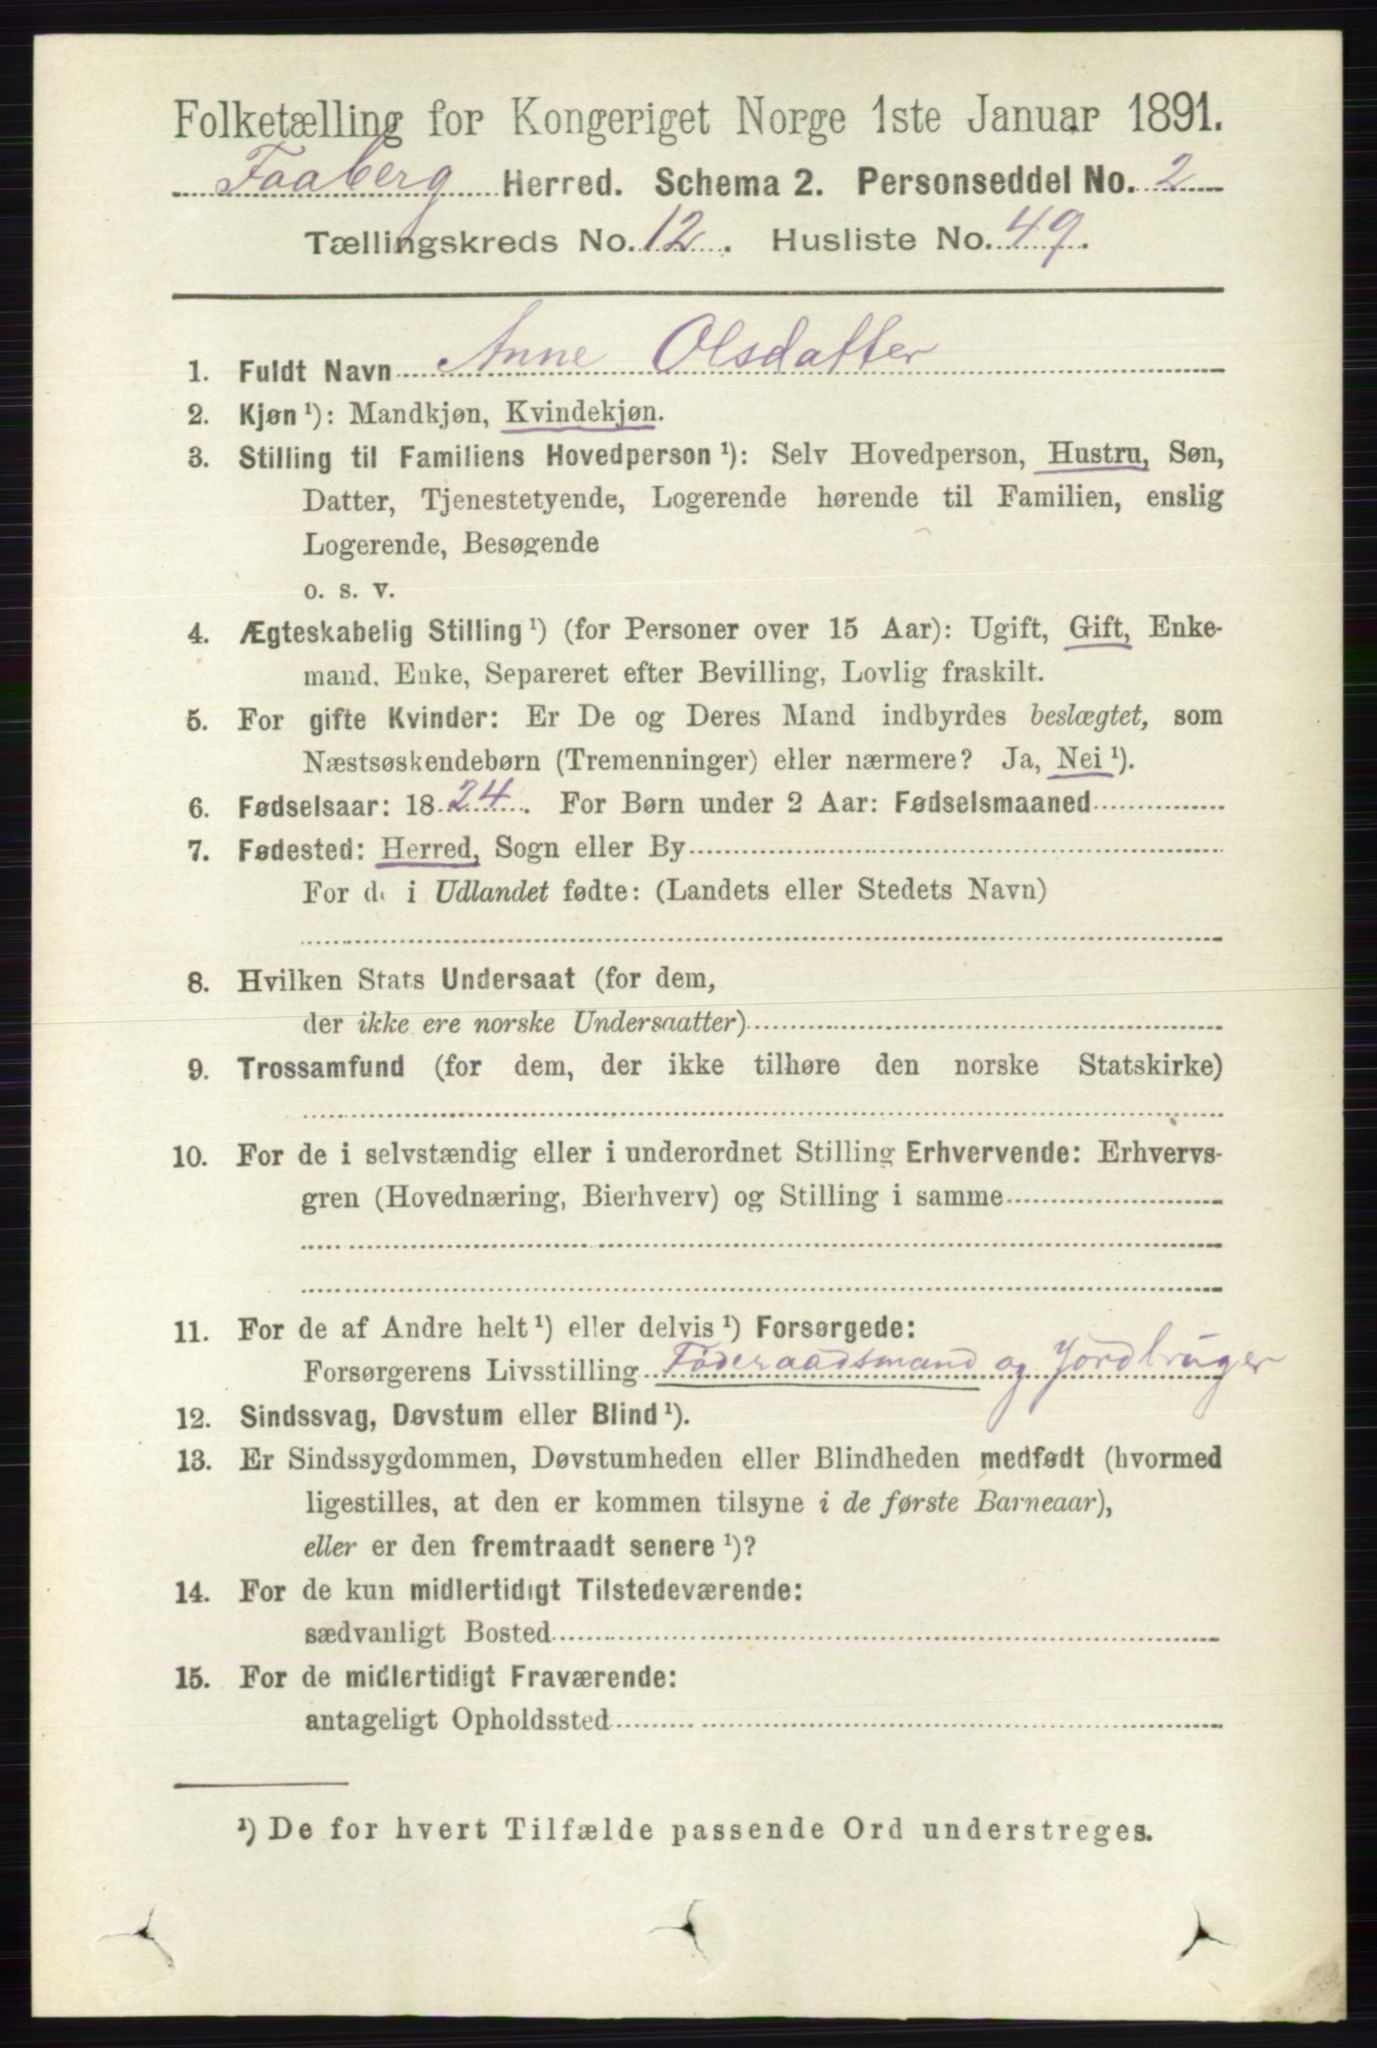 Folketælling for Kongeriget Norge 1ste Januar 1891.
Faaberg Herred. Schema 2. Personseddel No. 2
Tællingskreds No. 12. Husliste No. 49.
1. Fuldt Navn Anne Olsdatter
2. Kjøn ¹): Mandkjøn, Kvindekjøn.
3. Stilling til Familiens Hovedperson ¹): Selv Hovedperson, Hustru, Søn,
Datter, Tjenestetyende, Logerende hørende til Familien, enslig
Logerende, Besøgende
o. s. v.
4. Ægteskabelig Stilling ¹) (for Personer over 15 Aar): Ugift, Gift, Enke-
mand, Enke, Separeret efter Bevilling, Lovlig fraskilt.
5. For gifte Kvinder: Er De og Deres Mand indbyrdes beslægtet, som
Næstsøskendebørn (Tremenninger) eller nærmere? Ja, Nei ¹).
6. Fødselsaar: 1824. For Børn under 2 Aar: Fødselsmaaned
7. Fødested: Herred, Sogn eller By
For de i Udlandet fødte: (Landets eller Stedets Navn)
8. Hvilken Stats Undersaat (for dem,
der ikke ere norske Undersaatter)
9. Trossamfund (for dem, der ikke tilhøre den norske Statskirke)
10. For de i selvstændig eller i underordnet Stilling Erhvervende: Erhvervs-
gren (Hovednæring, Bierhverv) og Stilling i samme
11. For de af Andre helt ¹) eller delvis ¹) Forsørgede:
Forsørgerens Livsstilling Föderaadsmand og Jordbruger
12. Sindssvag, Døvstum eller Blind ¹).
13. Er Sindssygdommen, Døvstumheden eller Blindheden medfødt (hvormed
ligestilles, at den er kommen tilsyne i de første Barneaar),
eller er den fremtraadt senere ¹)?
14. For de kun midlertidigt Tilstedeværende:
sædvanligt Bosted
15. For de midlertidigt Fraværende:
antageligt Opholdssted
¹) De for hvert Tilfælde passende Ord understreges.